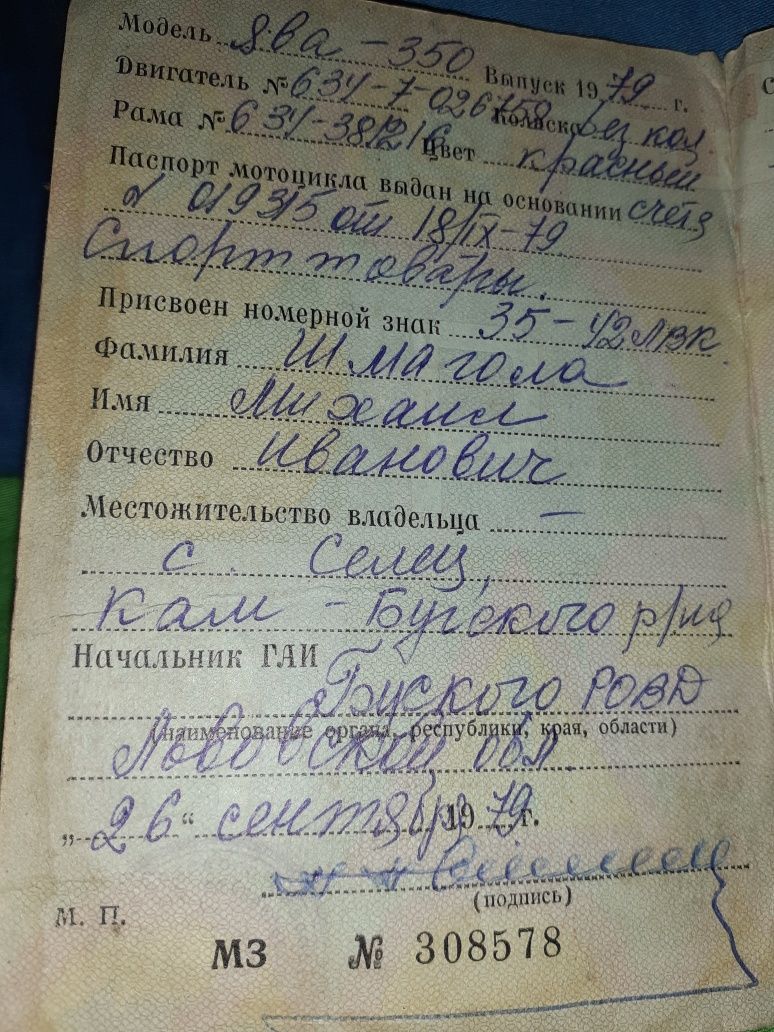 Модель Ява-350 Выпуск 1979 г.
Двигатель № 634-7-026759 Коляска без кол.
Рама № 634-381216 Цвет красный
Паспорт мотоцикла выдан на основании счета
019315 от 18/IX-79
Спорттовары.
Присвоен номерной знак 35-42 ЛВК
Фамилия Шмагола
Имя Михаил
Отчество Иванович
Местожительство владельца —
с. Селец,
Кам-Бугского р/на
Начальник ГАИ
Буского РОВД
(наименование органа, республики, края, области)
Львовской обл.
„26“ сентября 1979 г.
(подпись)
М. П.
МЗ № 308578